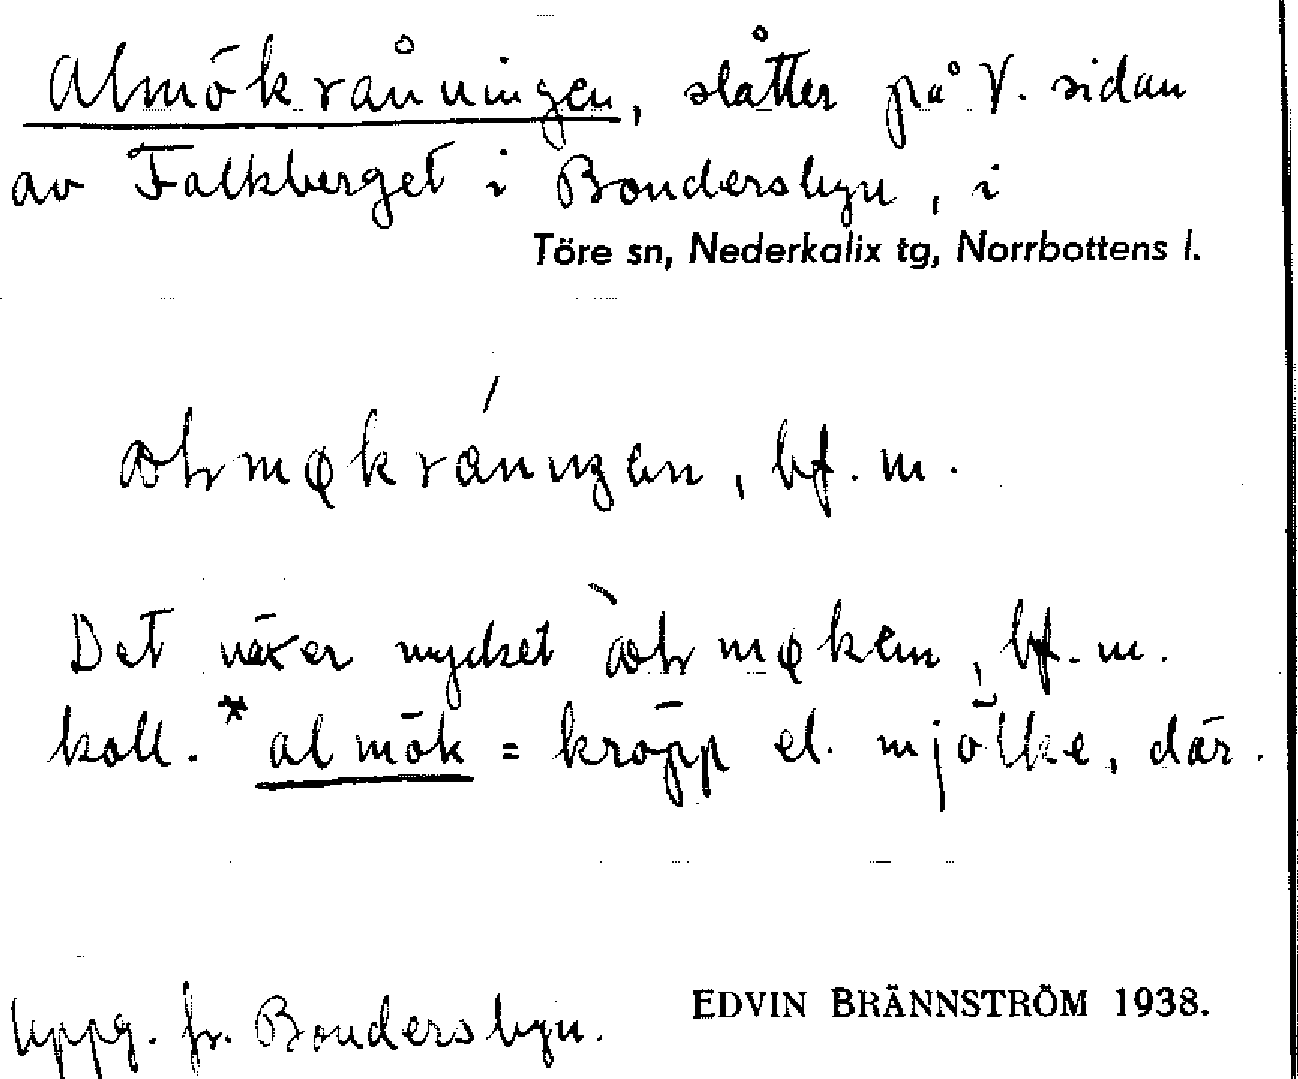 Almökråningen, slåtter på V. sidan
av Falkberget i Bondersbyn, i
Töre sn, Nederkalix tg, Norrbottens l.
bf. m.
Det växer mycket bf. m.
koll. *almök = kröpp el. mjölke, där.
Uppg. fr. Bondersbyn.
EDVIN BRÄNNSTRÖM 1938.